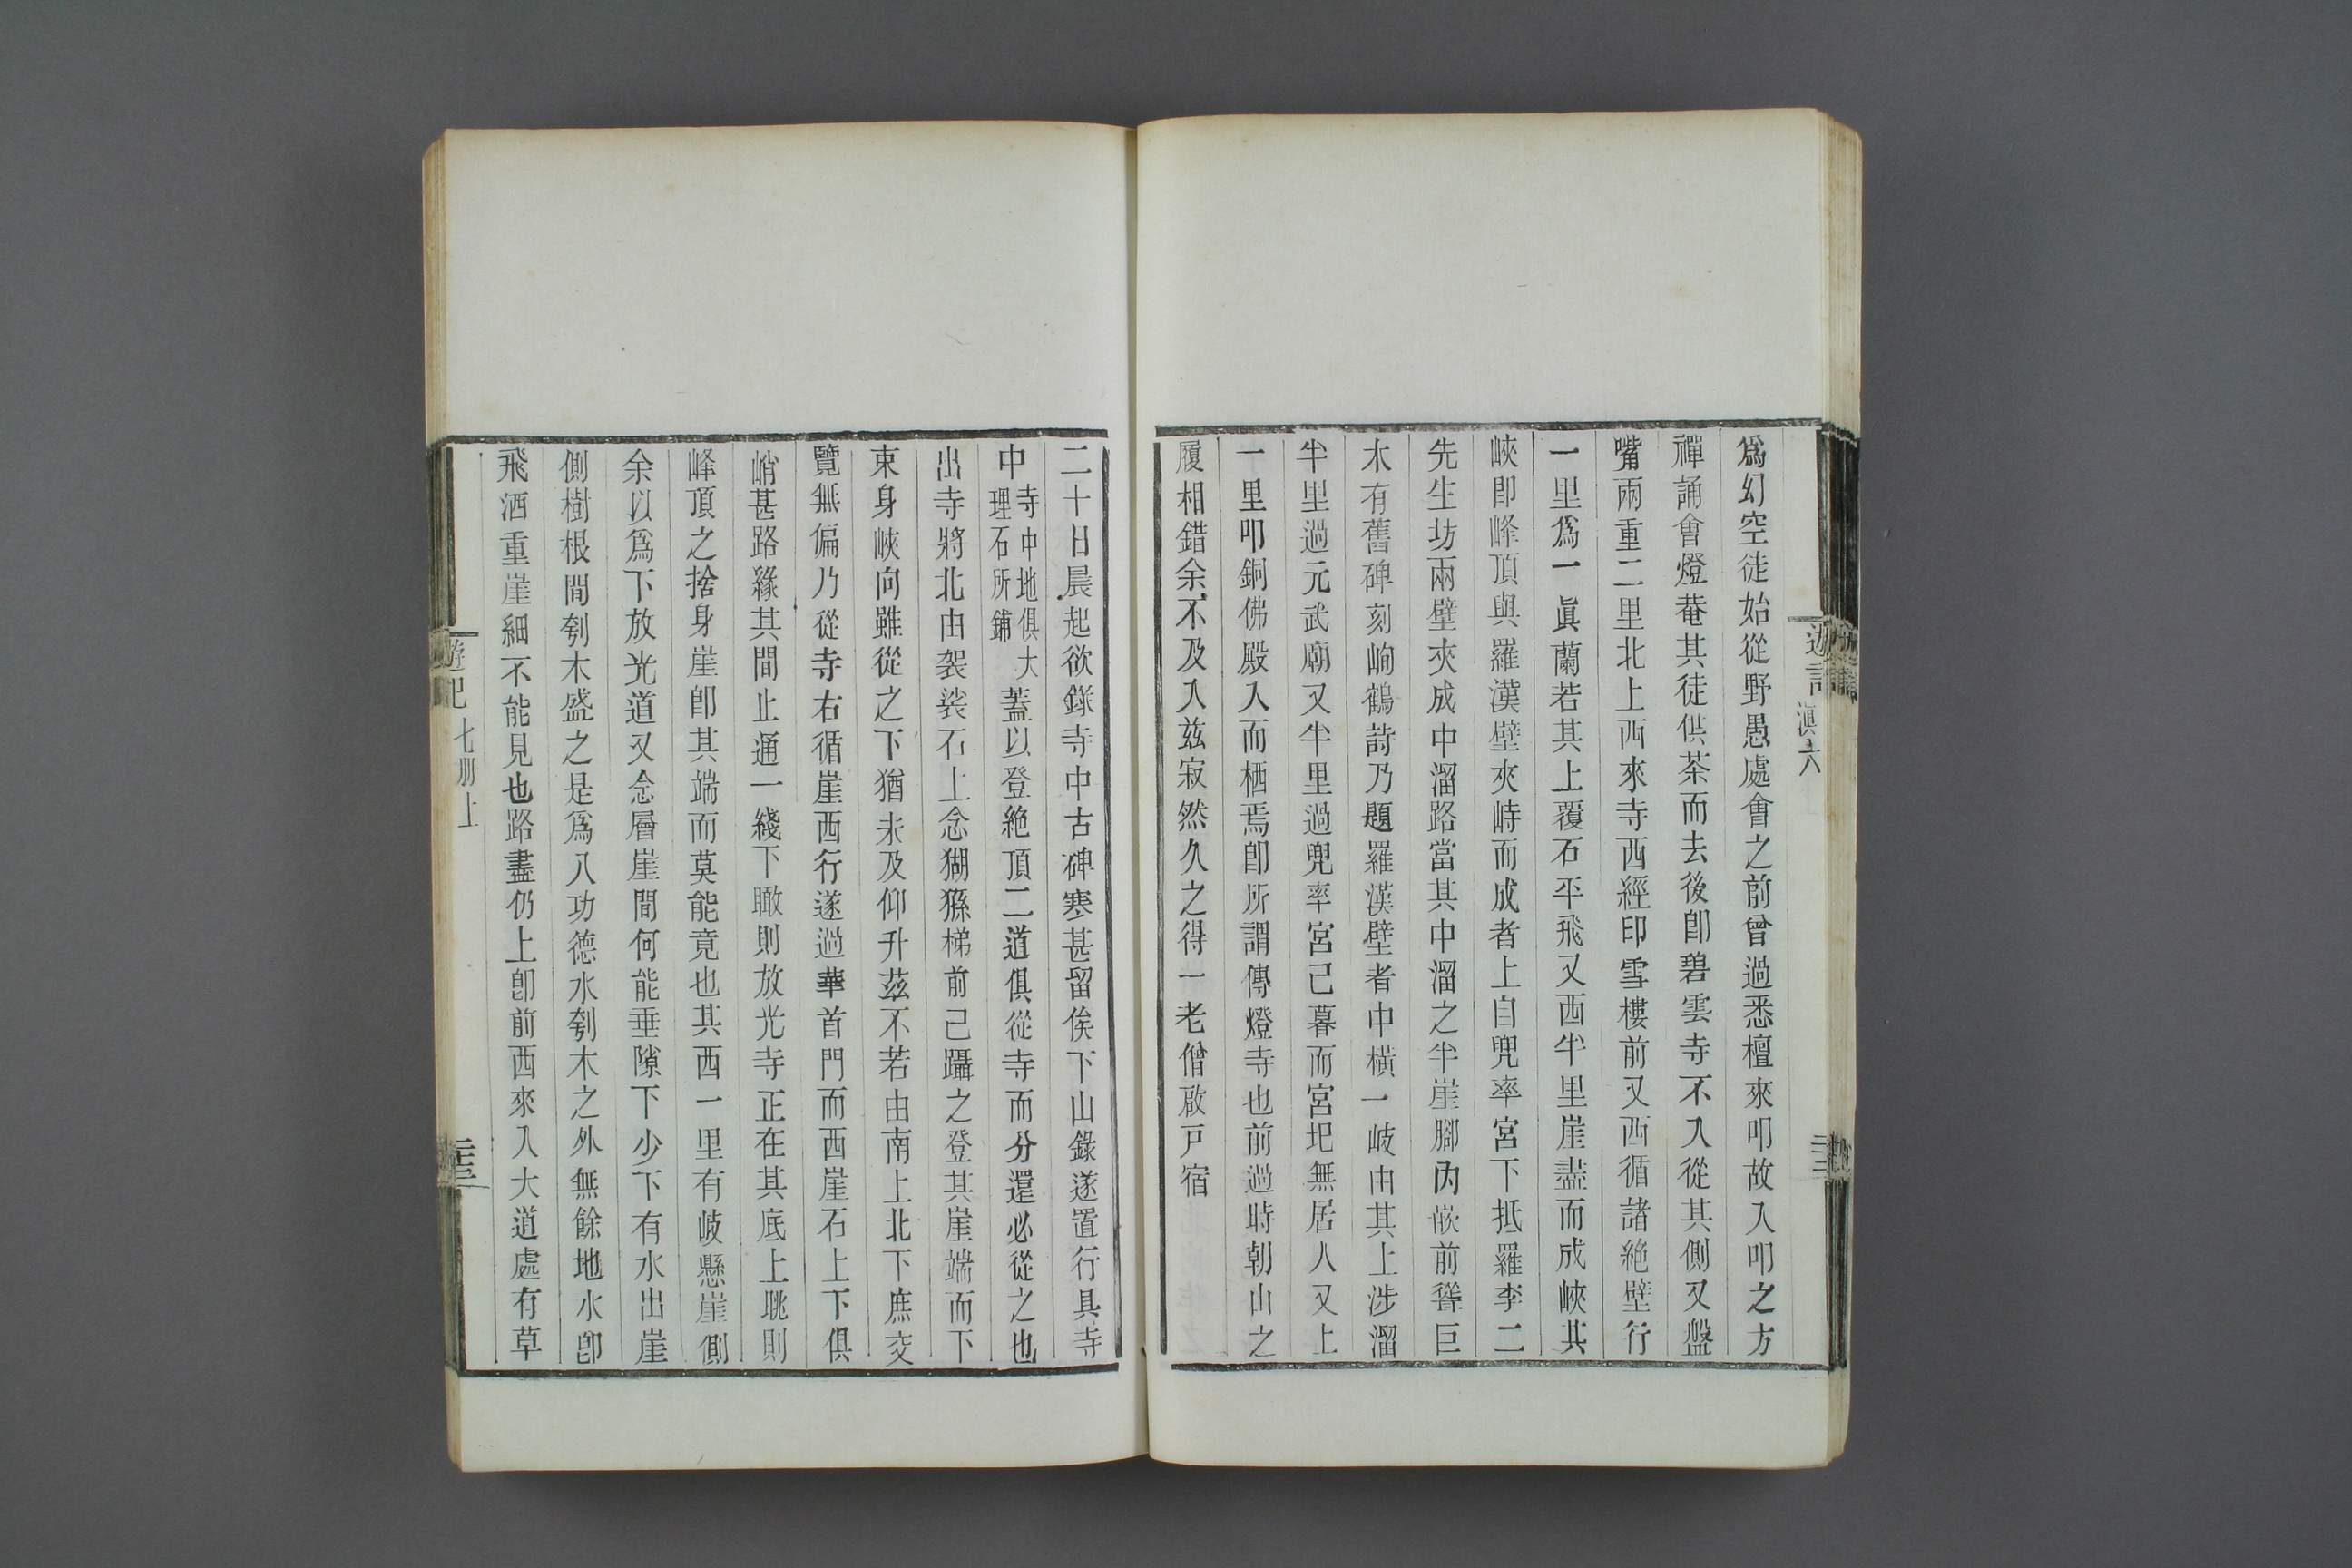 遊記
滇六
爲幻空徒始從野愚處會之前曾過悉檀來叩故入叩之方
禪誦會燈菴其徒供茶而去後卽碧雲寺不入從其側又盤
嘴兩重二里北上西來寺西經印雪樓前又西循諸絕壁行
一里爲一眞蘭若其上覆石平飛又西半里崖盡而成峽其
峽卽峰頂與羅漢壁夾峙而成者上自兜率宮下抵羅李二
先生坊兩壁夾成中溜路當其中溜之半崖腳內嵌前聳巨
木有舊碑刻峋鶴詩乃題羅漢壁者中橫一岐由其上涉溜
半里過元武廟又半里過兜率宮已暮而宮圯無居人又上
一里叩銅佛殿入而栖焉卽所謂傳燈寺也前過時朝山之
履相錯余不及入茲寂然久之得一老僧啟戸宿
二十日晨起欲錄寺中古碑寒甚留俟下山錄遂置行具寺
中寺中地俱大理石所鋪蓋以登絕頂二道俱從寺而分還必從之也
出寺將北由袈裟石上念猢猻梯前已躡之登其崖端而下
束身峽向雖從之下猶未及仰升茲不若由南上北下庶交
覽無偏乃從寺右循崖西行遂過華首門而西崖石上下俱
峭甚路緣其間止通一綫下瞰則放光寺正在其底上眺則
峰頂之捨身崖卽其端而莫能竟也其西一里有岐懸崖側
余以爲下放光道又念層崖間何能垂隙下少下有水出崖
側樹根間刳木盛之是爲八功德水刳木之外無餘地水卽
飛洒重崖細不能見也路盡仍上卽前西來入大道處有草
遊記
七册上